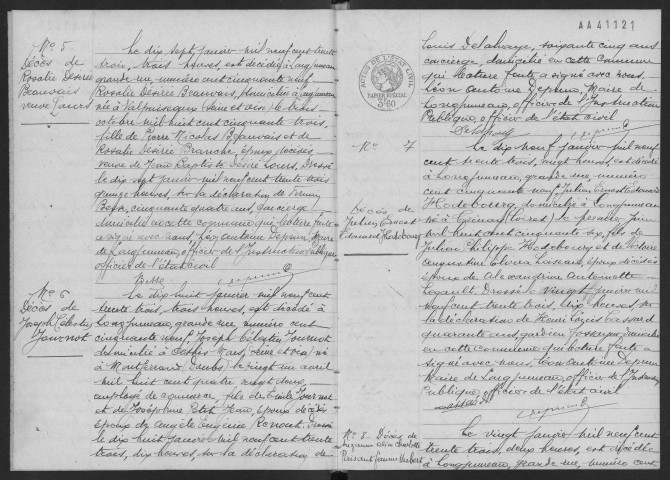 No 5
Décès de
Rosalie Désirée
Beauvais
veuve Lours
Le dix sept janvier mil neuf cent trente
trois, trois heures, est décédée à Longjumeau
grande rue, numéro cent cinquante neuf
Rosalie Désirée Beauvais, domiciliée à Longjumeau
née à Valpuiseaux (Seine et Oise) le treize
octobre mil huit cent cinquante trois,
fille de Pierre Nicolas Beauvais et de
Rosalie Désirée Branche, époux décédés,
veuve de Jean Baptiste Désiré Lours. Dressé
le dix sept janvier mil neuf cent trente trois
quinze heures, sur la déclaration de
cinquante quatre ans, concierge
domicilié en cette commune qui lecture faite
a signé avec nous, Léon Antoine Maire
de Longjumeau, officier de l'Instruction Publique
officier de l'état civil
No 6
Décès de
Joseph Célestin
Journot
Le dix huit janvier mil neuf cent
trente trois, trois heures, est décédé à
Longjumeau, grande rue, numéro cent
cinquante neuf, Joseph Célestin Journot
domicilié à (Seine et Oise) né
à Montferrand (Doubs) le vingt un avril
mil huit cent quatre vingt deux,
employé de commerce, fils de Emile Journot
et de Joséphine Petit Jean, époux décédés
époux de Angèle Eugénie Renout. Dressé
le dix huit janvier mil neuf cent trente
trois, dix heures, sur la déclaration de
AA41121
ACTES DE L'ETAT CIVIL
PAPIER SPECIAL
3f60
Louis Delahaye, soixante cinq ans
concierge, domicilié en cette commune
qui lecture faite a signé avec nous,
Léon Antoine Maire de
Longjumeau, officier de l'Instruction
Publique, officier de l'état civil
Delahaye
No 7
Décès de
Julien Ernest
Edouard Hodebourg
Le dix neuf janvier mil neuf
cent trente trois, vingt heures, est décédé
à Longjumeau, grande rue, numéro
cent cinquante neuf, Julien Ernest Edouard
Hodebourg, domicilié à Longjumeau
né à (Loiret) le premier
mil huit cent cinquante six, fils de
Julien Philippe Hodebourg et de Victoire
Augustine époux décédés
époux de Alexandrine Antoinette
Dressé le vingt janvier mil
neuf cent trente trois, dix heures, sur
la déclaration de Henri Louis
quarante ans, gardien domicilié
en cette commune qui lecture faite a
signé avec nous, Léon Antoine
Maire de Longjumeau, officier de l'Instruction
Publique, officier de l'état civil
No 8 Décès de
Suzanne Charlotte
Le vingt janvier mil neuf cent
trente trois, deux heures, est décédée
à Longjumeau, grande rue, numéro cent